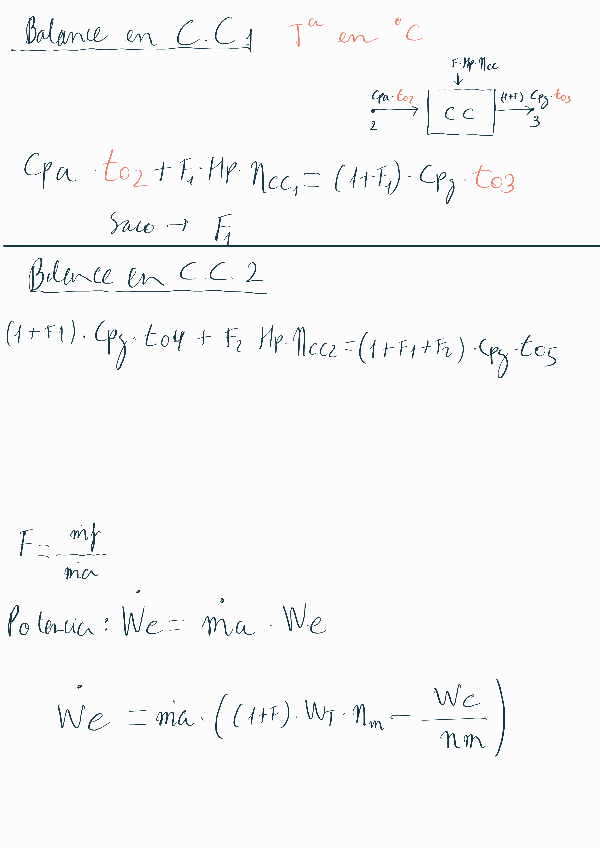 Balance en C.C1 Tª en °C
F·Hp·ηcc
Cpa·to2 CC (1+F) Cpg·to3
2 3
Cpa · to2 + F1·Hp·ηCC1 = (1+F1)·Cpg·to3
Saco → F1
Balance en C.C.2
(1+F1)·Cpg·to4 + F2·Hp·ηCC2 = (1+F1+F2)·Cpg·to5
F = ṁf / ṁa
Potencia: Ẇe = ṁa · We
Ẇe = ṁa·((1+F)·WT·ηm − Wc / ηm)